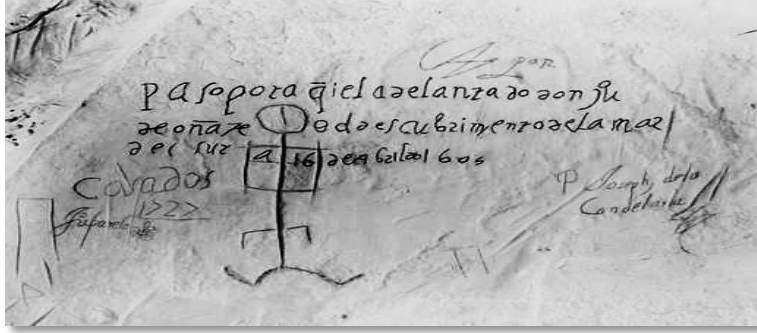 pasoporaq̃ieladelantadodonjũ
deoñateeldescubrimentodelamar
delsur a 16 deabrildel 1605
Casados
P Joseph, dela
Candelaria